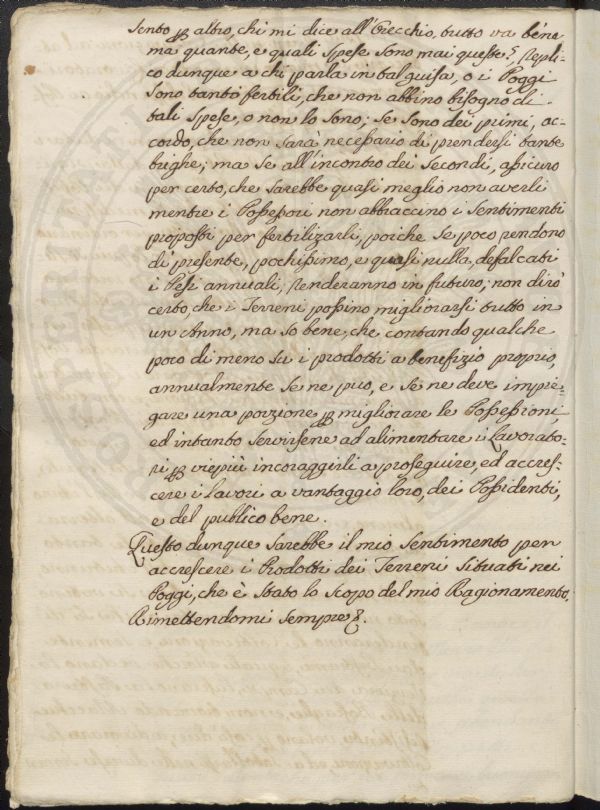 Sento ꝑ altro, chi mi dice all'Orecchio, tutto va bene
ma quante, e quali spese sono mai queste?, Repli-
co dunque a chi parla in tal guisa, o i Poggi
sono tanto fertili, che non abbino bisogno di
tali spese, o non lo sono; se sono dei primi, ac-
cordo, che non sarà necessario di prendersi tante
brighe; ma se all'incontro dei secondi, assicuro
per certo, che sarebbe quasi meglio non averli
mentre i Possessori non abbraccino i sentimenti
proposti per fertilizarli, poiche se poco rendono
di presente, pochissimo, e quasi nulla, defalcati
i Pesi annuali, renderanno in futuro; non dirò
certo, che i Terreni possino migliorarsi tutto in
un Anno, ma so bene, che contando qualche
poco di meno su i prodotti a benefizio proprio,
annualmente se ne può, e se ne deve impie-
gare una porzione ꝑ migliorare le Possessioni,
ed intanto servirsene ad alimentare i Lavorato-
ri ꝑ viepiù incoraggirli a proseguire, ed accres-
cere i lavori a vantaggio loro, dei Possidenti,
e del publico bene.
Questo dunque sarebbe il mio sentimento per
accrescere i Prodotti dei Terreni situati nei
Poggi, che è stato lo scopo del mio Ragionamento.
Rimettendomi sempre